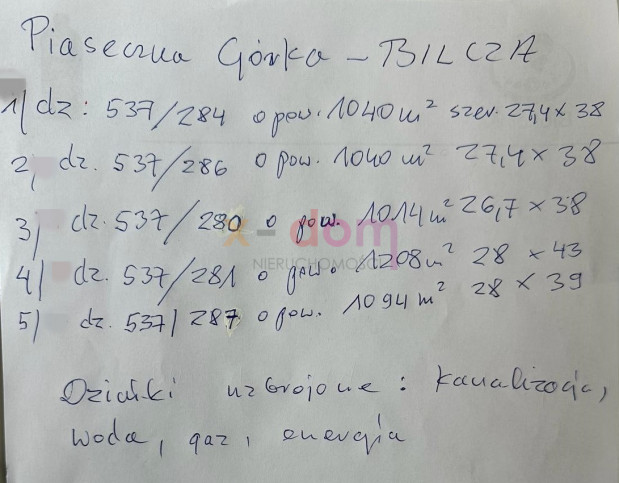 Piaseczna Górka - BILCZA
1) dz: 537/284 o pow. 1040 m² szer. 27,4 x 38
2) dz. 537/286 o pow. 1040 m² 27,4 x 38
3) dz. 537/280 o pow. 1014 m² 26,7 x 38
x-dom
NIERUCHOMOŚCI
4) dz. 537/281 o pow. 1208 m² 28 x 43
5) dz. 537/287 o pow. 1094 m² 28 x 39
Działki uzbrojone: kanalizacja,
woda, gaz, energia